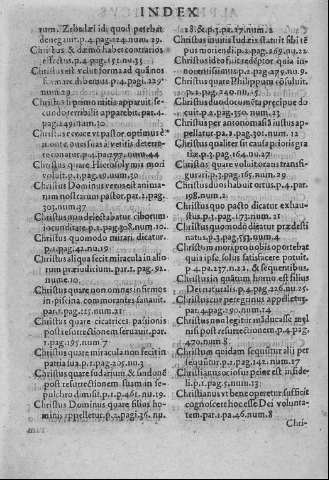 INDEX
rum. Zebedæi id, quod petebat
denegauit.p.4.pag.124.num.29.
Christus & dæmo habet contrarios
effectus.p.4.pag.151.nu.35
Christus est velut forma ad quã nos
pag.229
num.29
Christus in primo mitis apparuit, secundo
terribilis apparebit. par.4.
pag.249.num.10.
Christus e cruce vt pastor optimus
num.44
Christus quare Hortésoly mõ
voluit.p.1.pag.19.num.50
Christus Dominus verus est animarum
nostrarum pastor. par.1.pag.
301.num.37
Christus non delestabatur ciborum
iocunditate.p.1.pag.308.num.10.
Christus quomodo mirari dicatur.
p.1.pag.42.nu.19
Christus aliqua fecit miracula in aliorum
præiudicium.par.1.pag.92.
nume.10.
Christus quare non omnes infirmos
in piscina commorantes sanauit.
par.1.pag.115.num.21
Christus quare cicatrices passionis
post resurrectionem seruauit.par.
1.pag.195.num.7
Christus quare miracula non fecit in
patria sua.p.1.pag.205.nu.3
Christus quare sudarium & sindonē
post resurrectionem suam in sepulchro
dimisit.p.1.pag.461.nu.19.
Christus Dominus quare filius hominis
appelletur.p.2.pagi.36.nu.
28.&.p.3.pa.17.num.2
Christus inuitis Iudæis statuit sibi tépus
moriendi.p.2.pag.269.nu.22
Christus ideo fuit redéptor quia innocentissimus
p.2.pag.279.nu.9.
Christus quare Philippum
p.2.pag.240.nu.15
Christus duo documēta præcipue docuit
p.2.pag.350.num.13
Christus per antonomasiã iustus appellatur
pa.2.pag.301.num.12
Christus qualiter sit causa prioris gratiæ
p.3.pag.164.nu.27
Christus quare voluit coram tristi
p.3.pag.165.num.29
Christus duos habuit ortus.p.4.par.
198.num.2
Christus quo pacto dicatur exhaustus
p.3.pag.173.num.21
Christus quomodo dicatur prædestinatus
p.3.pag.553.num.4
Christum mori pro nobis oportebat
quia ipse solus satisfacere potuit.
p.4.pa.237.n.22. & sequentibus.
Christus in quãtum homo est filius
Dei naturalis.p.4.pag.226.nu.25.
Christus cur peregrinus appelletur.
par.4.pag.290.num.14
Christus non legitur mãducasse mel
nisi post resurrectionem.p.4 pag.
470.num.8
Christum quidam sequuntur alij persequuntur.
p.1.pag.142.num.17
Christianus ociosus peior est infideli.
p.2.pag.5.num.13:
Christianus vt bene operetur sufficit
cognoscere hoc esse Dei voluntatem
par.1.pa.46.num.8
Chri-